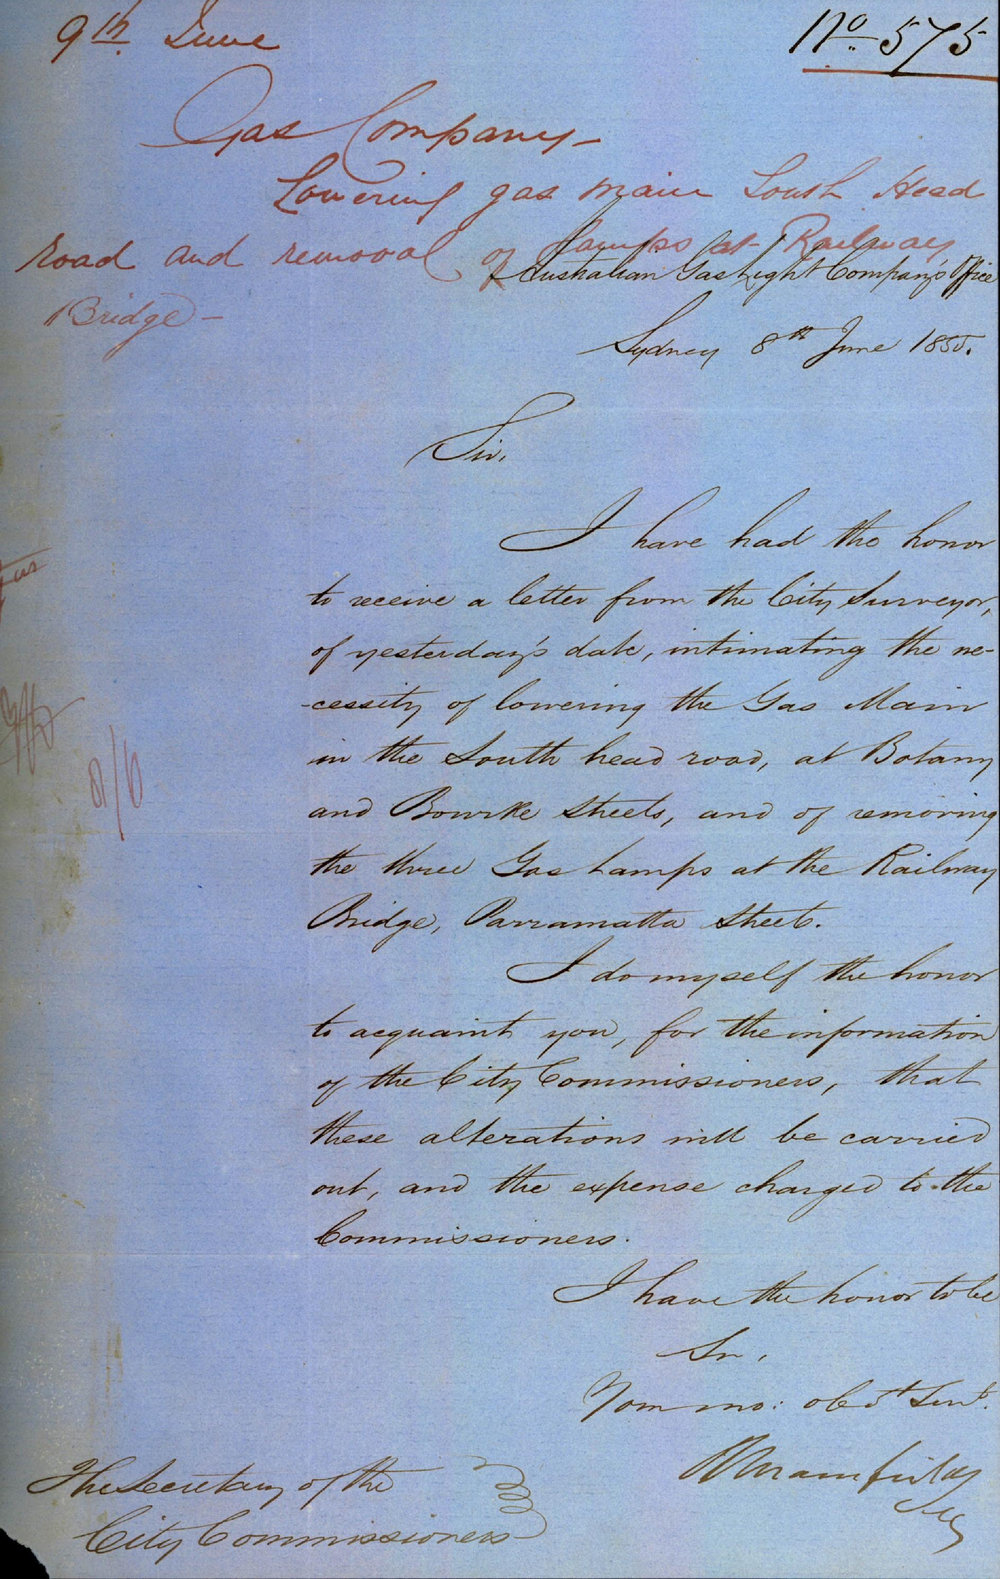 9th June
No. 575
Gas Company —
Lowering gas main South Head
road and removal of lamps at Railway
Bridge —
Australian Gas Light Company's Office
Sydney 8th June 1855.
Sir,
I have had the honor
to receive a letter from the City Surveyor,
of yesterday's date, intimating the ne-
-cessity of lowering the Gas Main
in the South head road, at Botany
and Bourke Streets, and of removing
the three Gas Lamps at the Railway
Bridge, Parramatta Street.
I do myself the honor
to acquaint you, for the information
of the City Commissioners, that
these alterations will be carried
out, and the expense charged to the
Commissioners.
I have the honor to be
Sir,
Your mo: obdt Servt.
Mansfield
Secy
The Secretary of the
City Commissioners